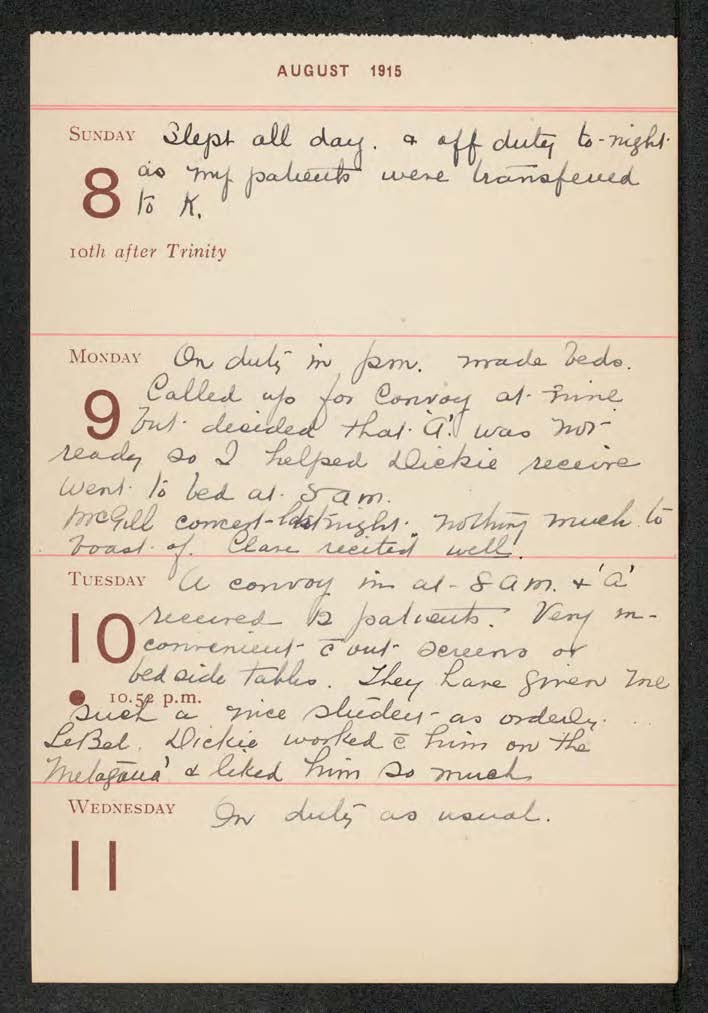 AUGUST 1915
SUNDAY Slept all day. & off duty to-night
8 as my patients were transferred
to K.
10th after Trinity
MONDAY On duty in pm. made beds.
9 Called up for Convoy at nine
but decided that 'A' was not
ready so I helped Dickie receive
Went to bed at 5 am.
McGill concert last night. nothing much to
boast of. Clare recited well.
TUESDAY A convoy in at 8 am. & 'A'
10 received 12 patients. Very in-
convenient c̄ out screens or
bedside tables. They have given me
10.52 p.m.
such a nice student as orderly. ...
LeBel. Dickie worked c̄ him on the
Metagama & liked him so much
WEDNESDAY On duty as usual.
11